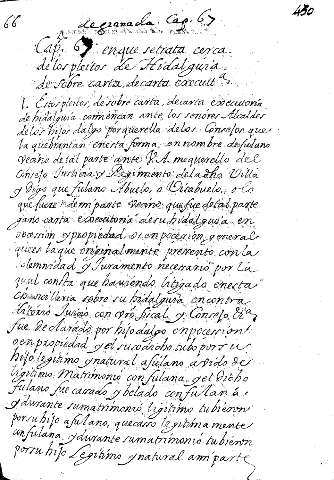 66 de granada. Cap. 67 450
Cap. 67 en que se trata cerca
de los pleitos de Hidalguia
de sobre carta, de carta execut.ª
1. Estos pleitos, de sobre carta, de carta executoria
de hidalguia comiencan ante los señores Alcaldes
de los hijos dalgo por querella de los Consejos que
la quebrantan en esta forma, en nombre de fulano
vecino de tal parte ante V.A. me querello del
Consejo Justicia y Regimiento de la dha Villa
y digo que fulano Abuelo, o Visabuelo, o lo
que fuere de mi parte vecino que fue de tal parte
gano carta executoria de su hidalguia en
posesion y propiedad o en posesion general
que es la que originalmente presento con la
solemnidad y Juramento necesario por la
qual consta que haviendo litigado en esta
Chancilleria sobre su hidalguia en contra
ditorio Juicio con vro fiscal, y Consejo,
fue declarado por hijo dalgo en posession
o en propiedad y el suso dicho tubo por su
hijo legitimo y natural a fulano avido de
legitimo Matrimonio con fulana, y el dicho
fulano fue casado y belado con fulana
y durante su matrimonio legitimo tubieron
por su hijo a fulano, que caso legitimamente
con fulana, y durante su matrimonio tubieron
por su hijo Legitimo y natural a mi parte